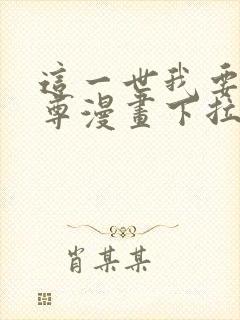 這一世我要
尊漫畫下拉
肖某某